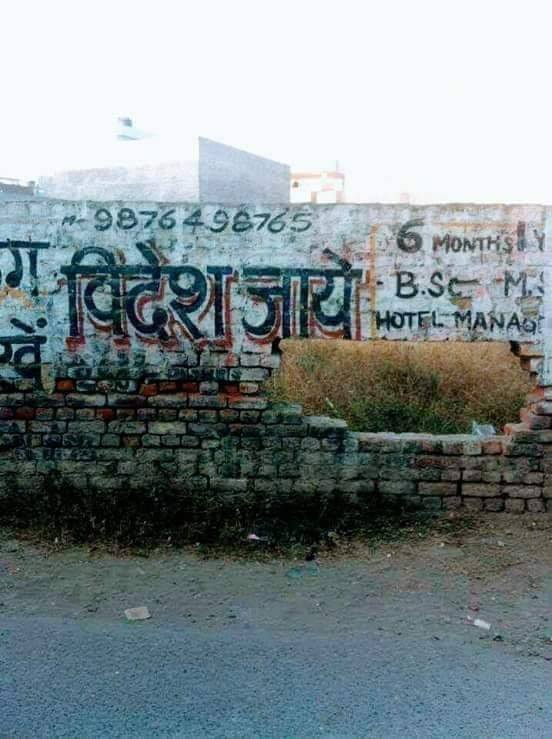 9876498765
विदेश जाये
6 MONTHS 1 Y
B.Sc M.S
HOTEL MANAG